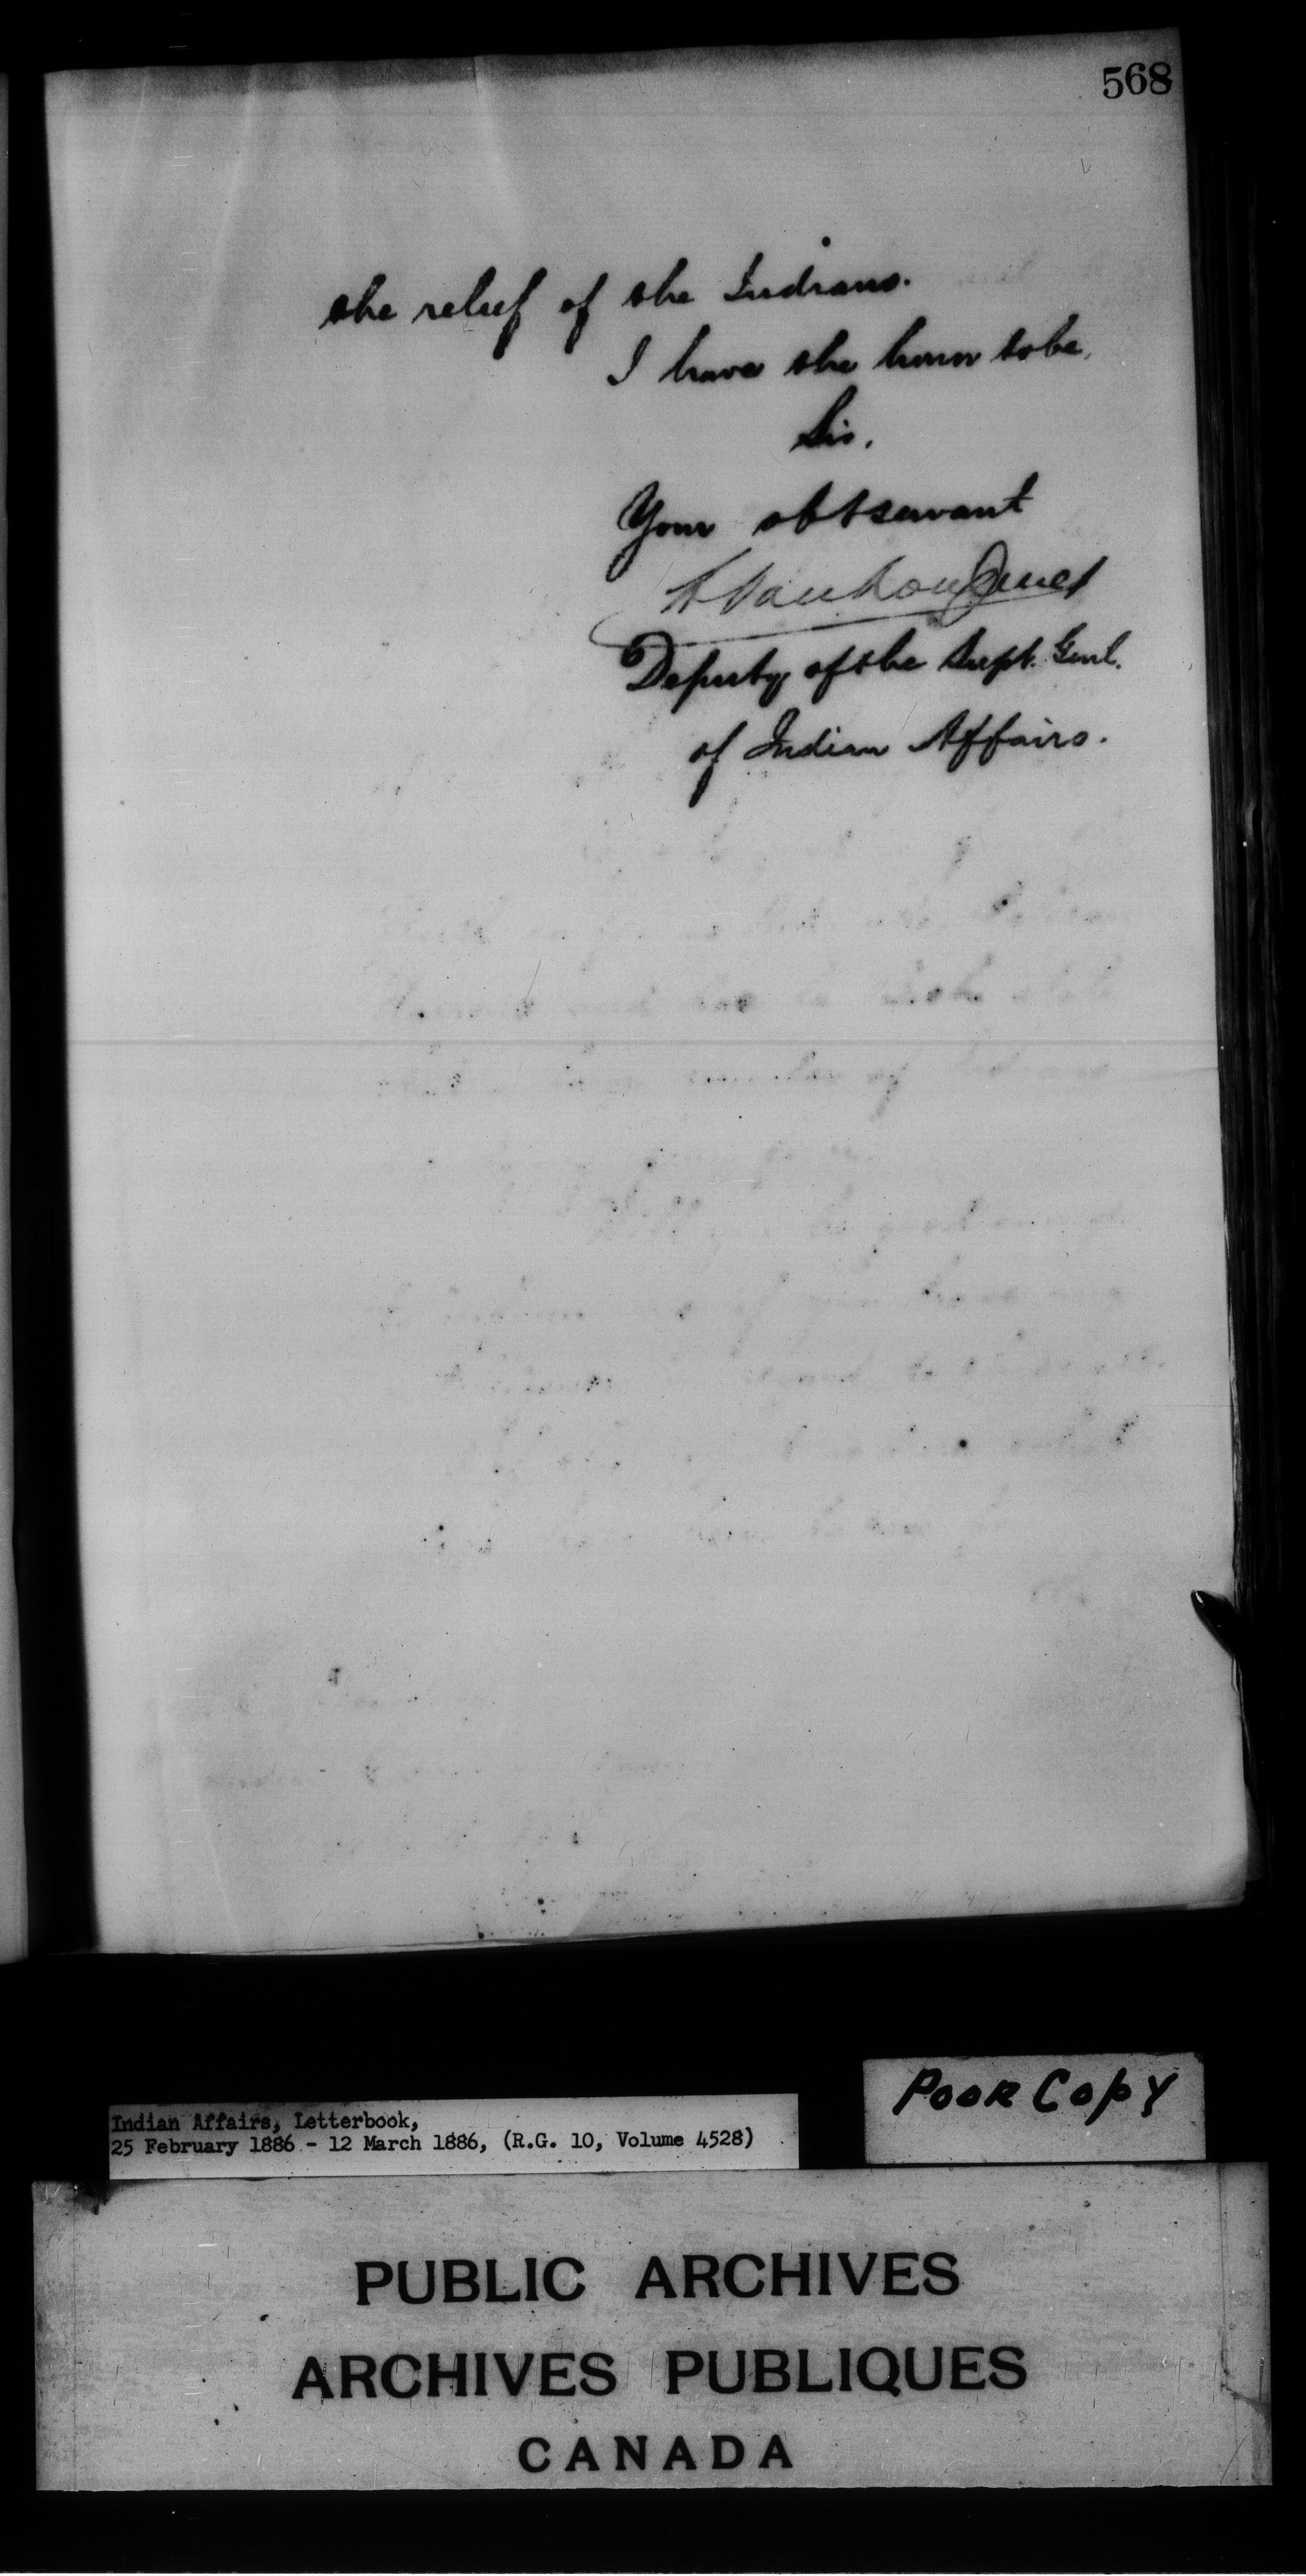 568
the relief of the Indians.
I have the honor to be,
Sir.
Your obt servant
L Vankoughnet
Deputy of the Supt. Genl.
of Indian Affairs.
POOR COPY
Indian Affairs, Letterbook,
25 February 1886 - 12 March 1886, (R.G. 10, Volume 4528)
PUBLIC ARCHIVES
ARCHIVES PUBLIQUES
CANADA